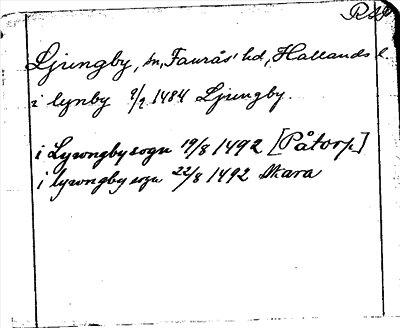 Ljungby, sn, Faurås' hd, Hallands l.
i lynby 9/2 1484 Ljungby.
i Lywngby sogn 19/8 1492 [Påtorp]
i lywngby sogn 22/8 1492 Skara